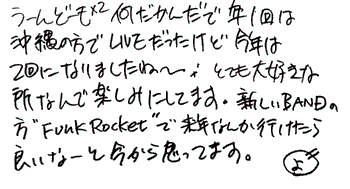 うーんどーも×2 何だかんだで年1回は
沖縄の方でLIVEだったけど今年は
2回になりましたね〜。とても大好きな
所なんで楽しみにしてます。新しいBANDの
方"Funk Rocket"で来年なんか行けたら
良いなーと今から思ってます。